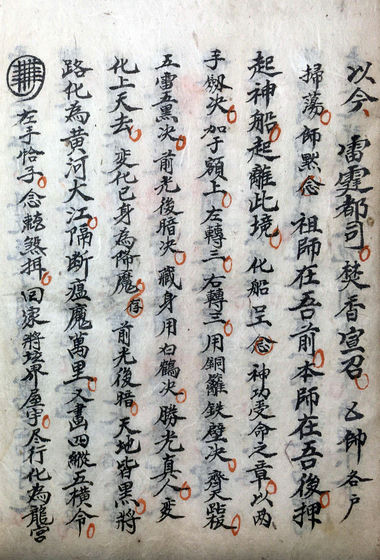 以今雷霆都司焚香宣召 乙帥各户
掃蕩師默念祖師在吾前本師在吾後押
起神船起離此境 化船 念神功受命之章以两
手劔决加于額上左轉三右轉三用銅籬鉄壁决齊天
五雷吾黑决前光後暗决藏身用白鶴决勝光真人变
化上天去变化已身為 魔存前光後暗天地皆黑將
路化為黄河大江隔断瘟魔萬里又畫四縱五橫令
左手恰子念 煞 回家將境界屋宇尽行化為龍宫